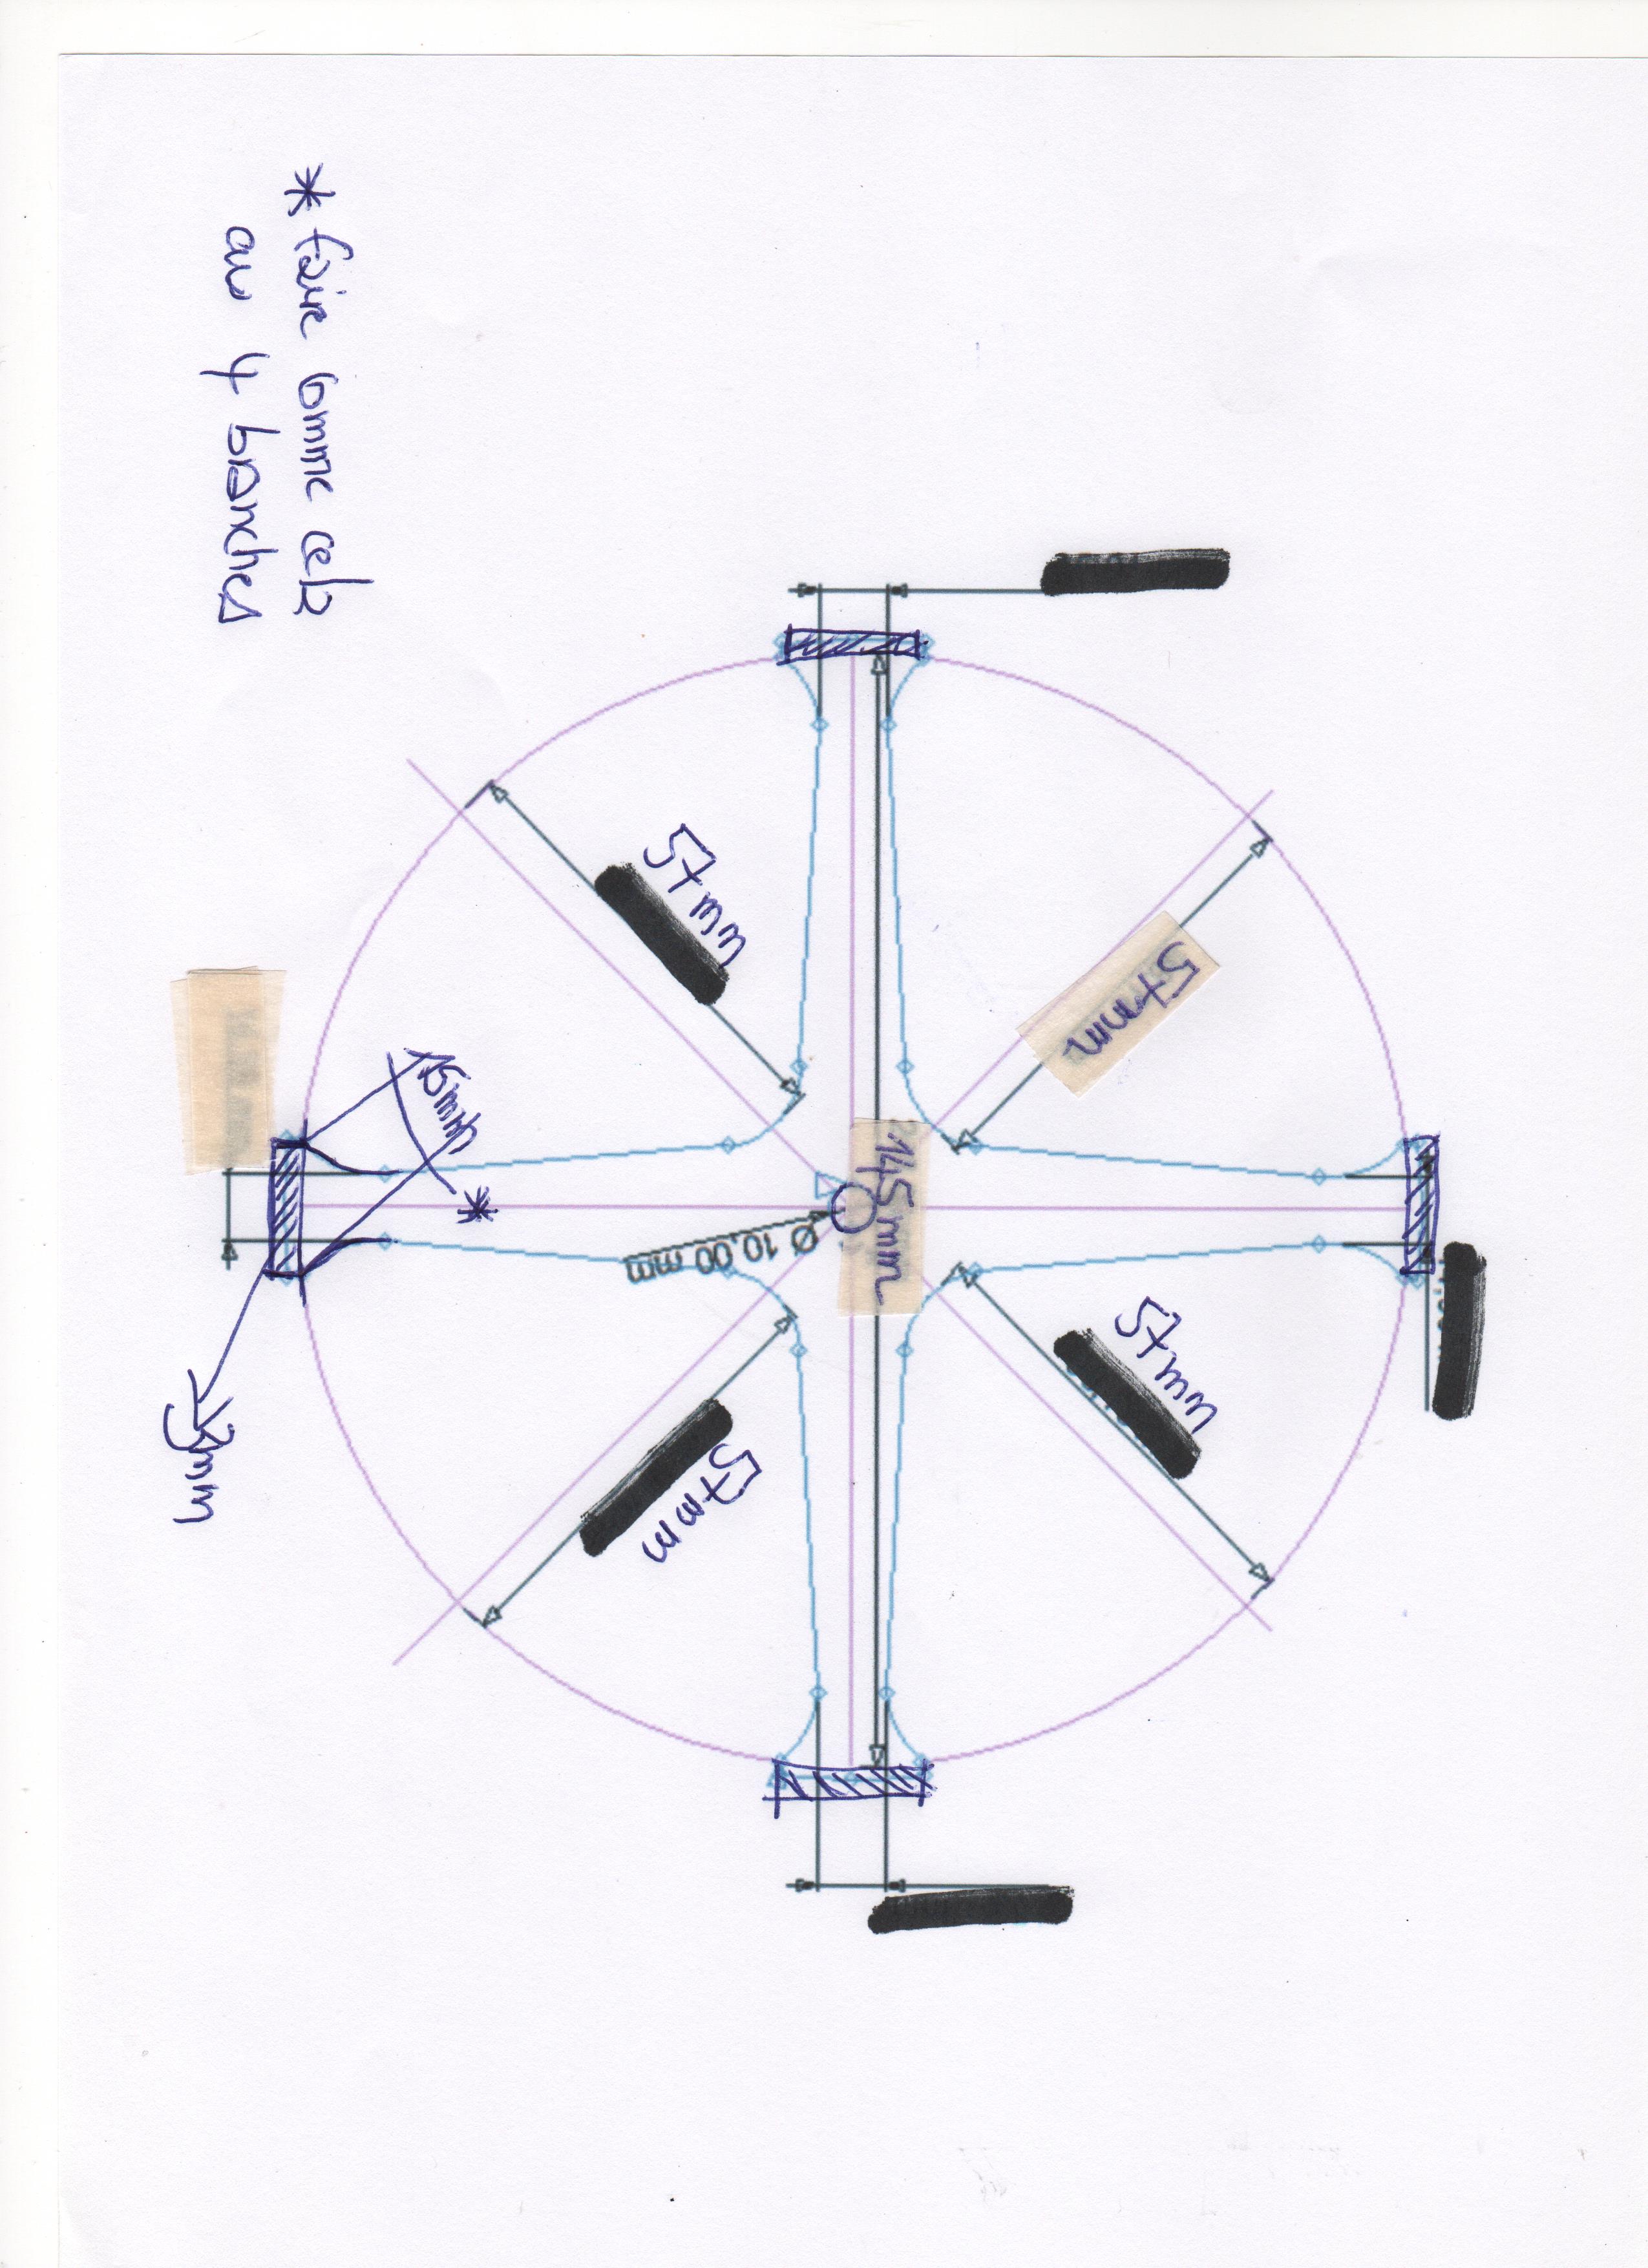 57mm
57mm
145mm
Ø 10,00 mm
57mm
57mm
15mm
*
* faire comme cela
au 4 branches
3mm